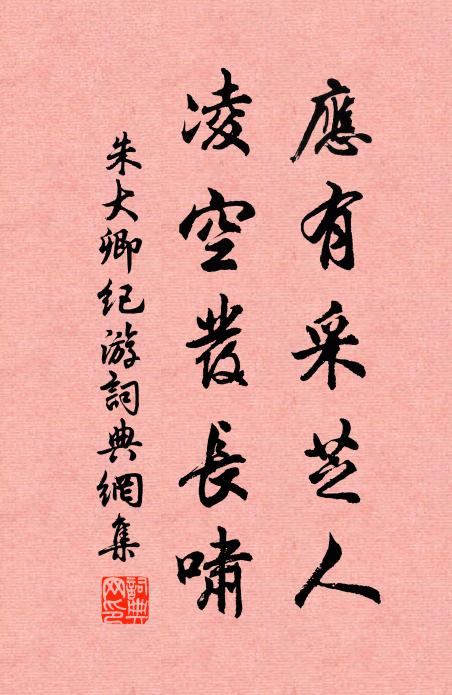 應有采芝人
凌空發長嘯
朱大卿紀游詞典網集
詞典網印